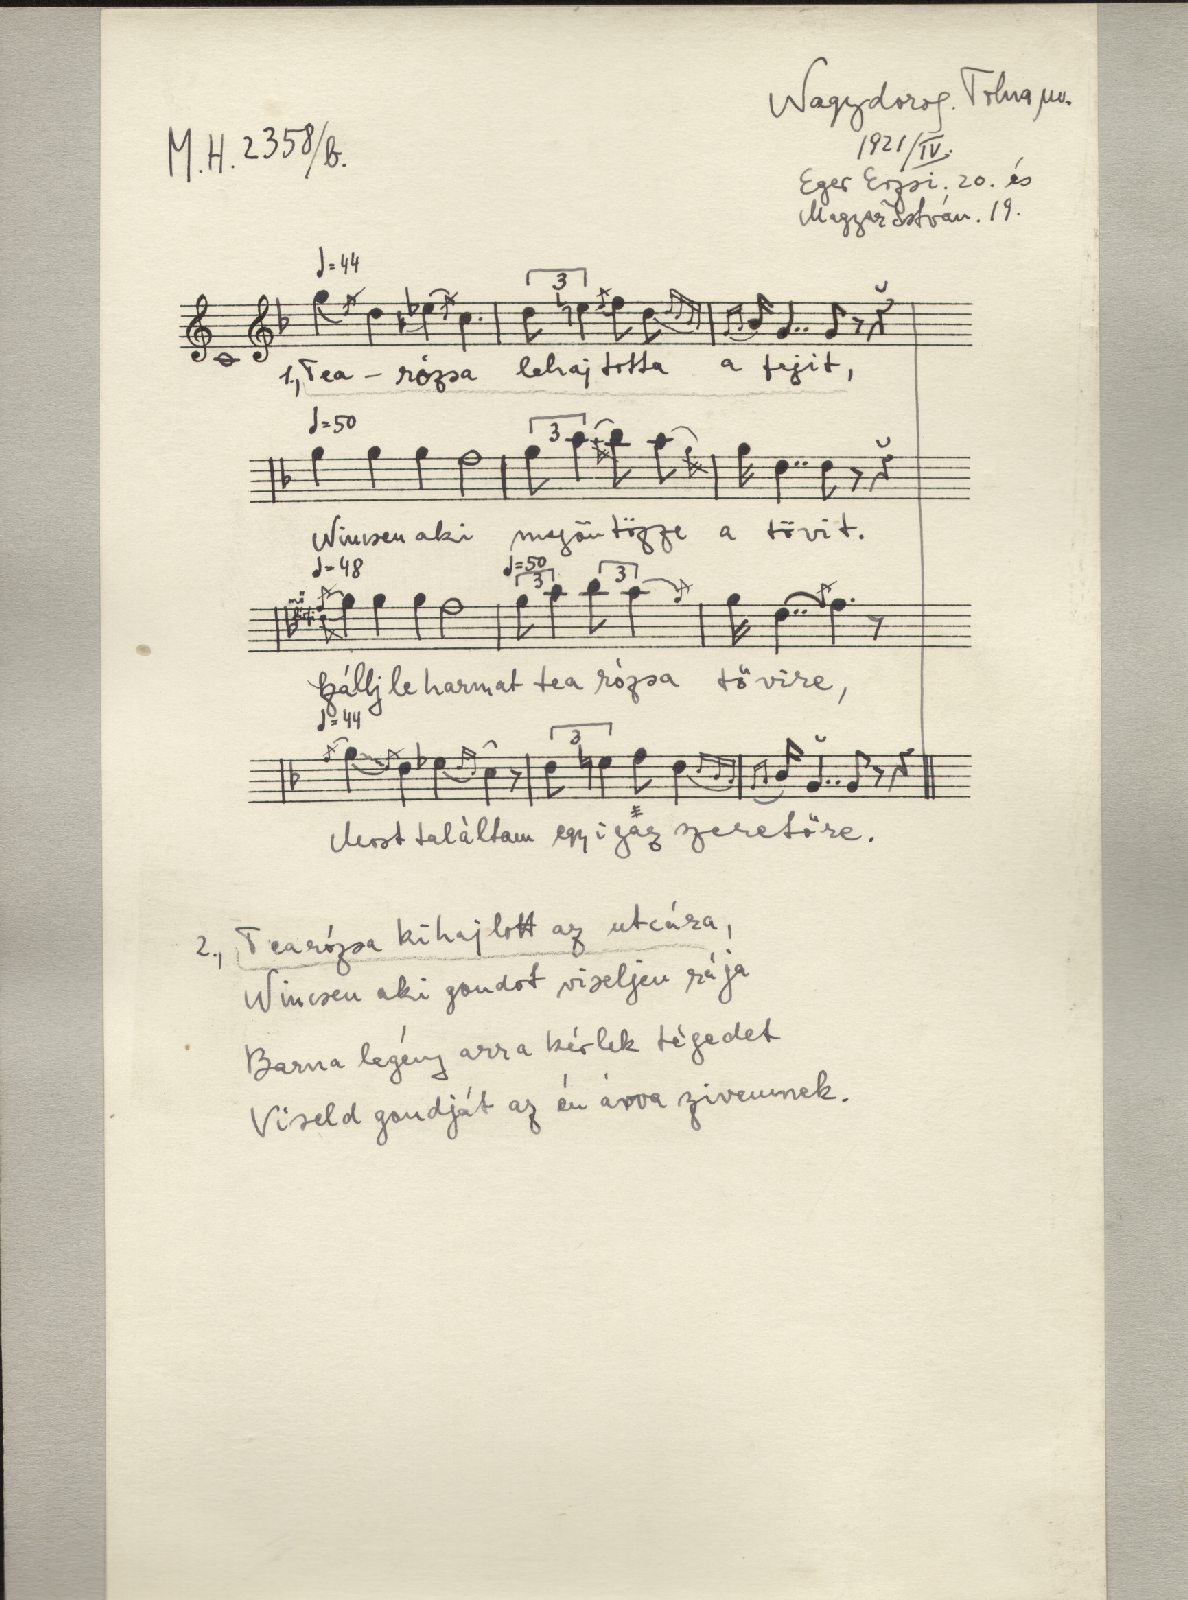 M.H. 2358/b.
Nagydorog. Tolna m.
1921/IV.
Eger Erzsi. 20. és
Magyar István. 19.
♩=44
3
1., Tea – rózsa lehajtotta a fejit,
♩=50
3
Nincsen aki megöntözze a tövit.
♩=48 ♩=50
3 3
Szállj le harmat tea rózsa tövire,
♩=44
3
Most találtam egy igaz szeretőre.
2., Tearózsa kihajlott az utcára,
Nincsen aki gondot viseljen rája
Barna legény arra kérlek tégedet
Viseld gondját az én árva szivemnek.